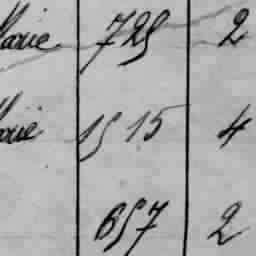 Marie 725 2
Marie 1515 4
657 2